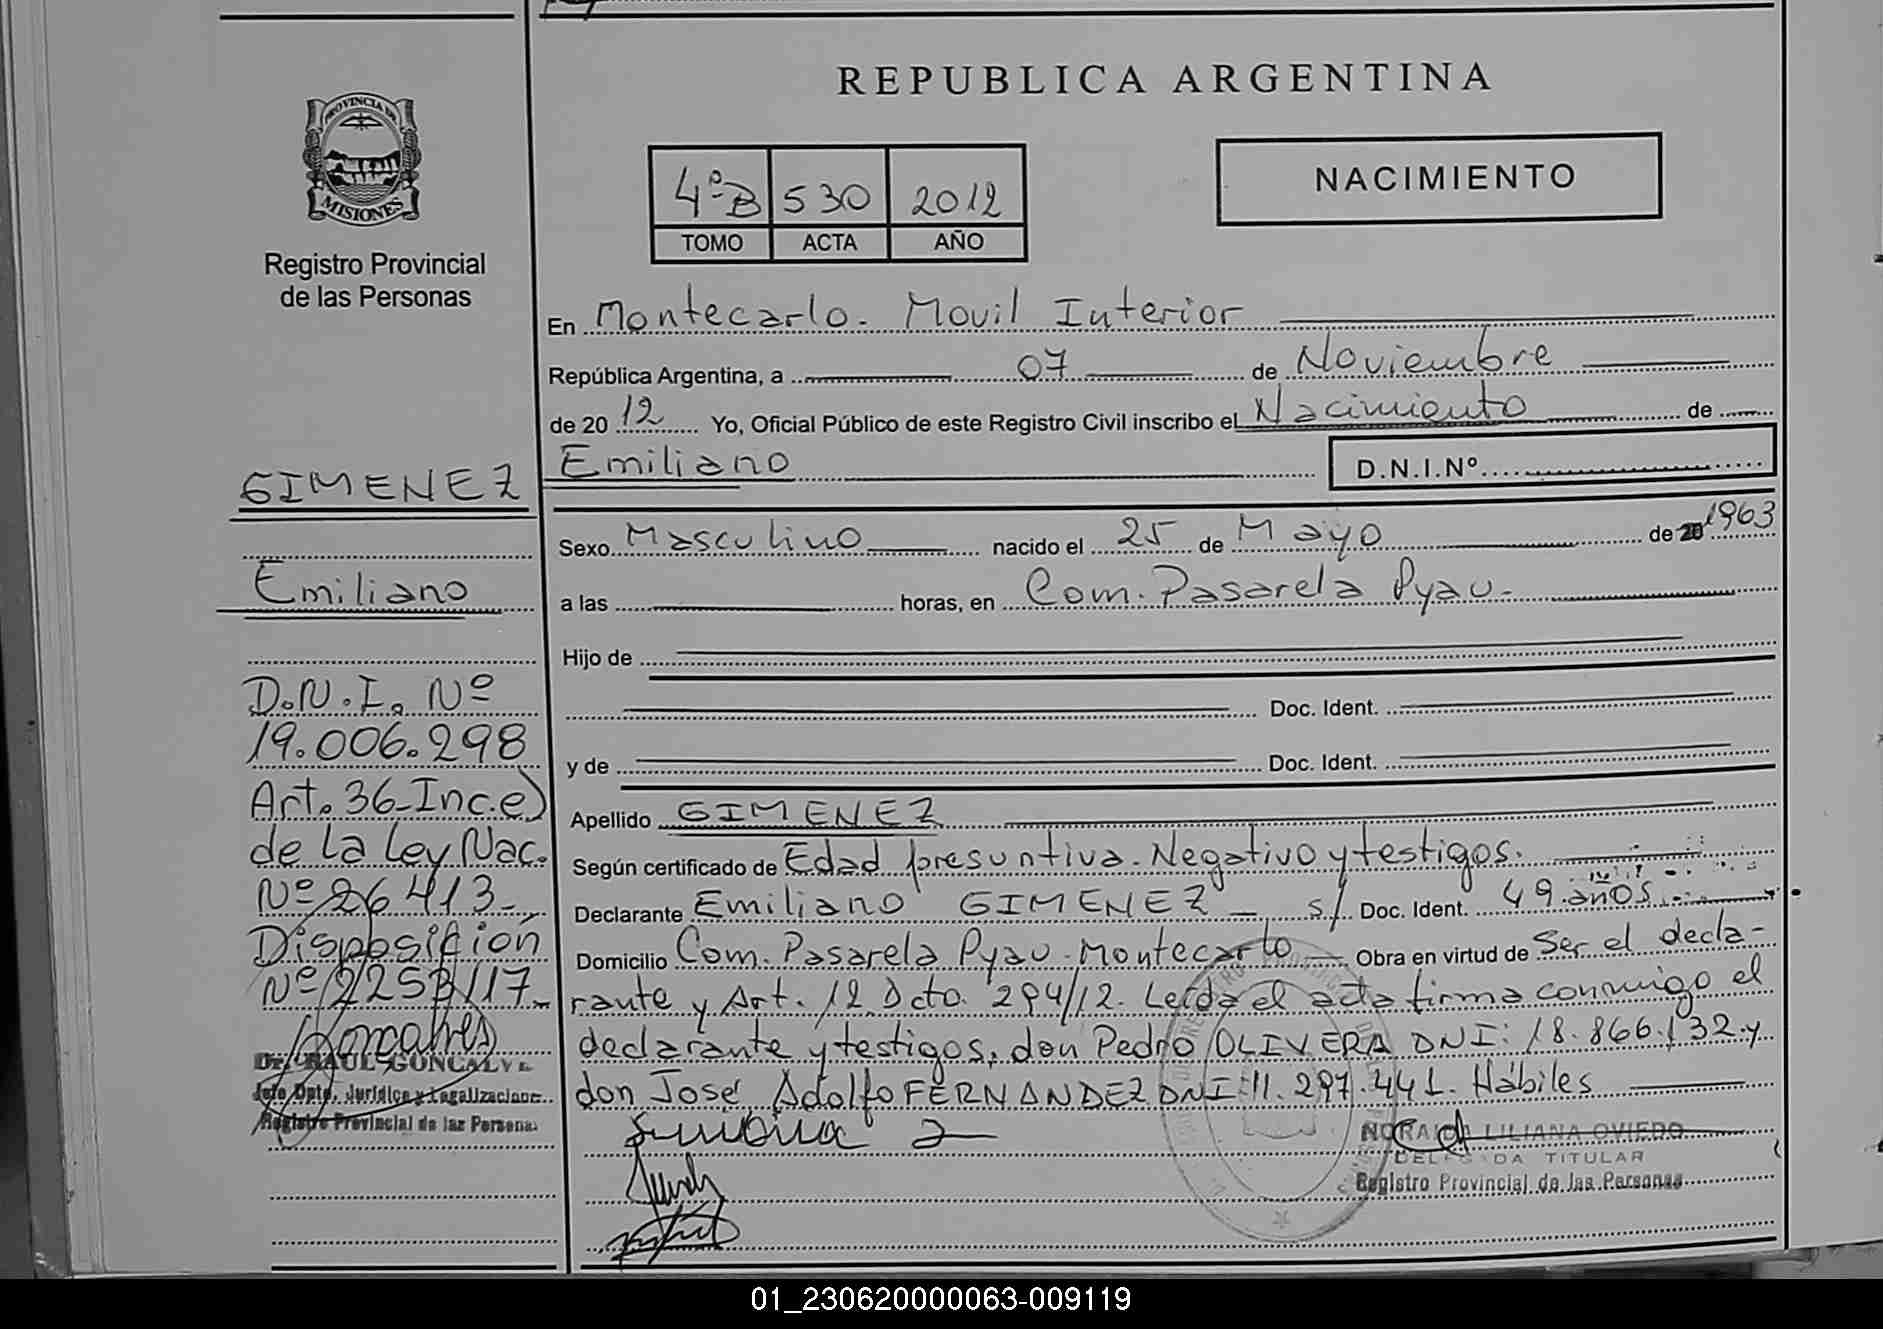 REPUBLICA ARGENTINA
PROVINCIA DE
MISIONES
Registro Provincial
de las Personas
4ºB 530 2012
TOMO ACTA AÑO
NACIMIENTO
En Montecarlo. Movil Interior
República Argentina, a 07 de Noviembre
de 2012 Yo, Oficial Público de este Registro Civil inscribo el Nacimiento de
Emiliano
D.N.I.Nº
Sexo Masculino nacido el 25 de Mayo de 20 1963
a las horas, en Com. Pasarela Pyau.
Hijo de
Doc. Ident.
y de Doc. Ident.
Apellido GIMENEZ
Según certificado de Edad presuntiva. Negativo y testigos.
Declarante Emiliano GIMENEZ s/ Doc. Ident. 49 años
Domicilio Com. Pasarela Pyau. Montecarlo Obra en virtud de Ser el decla-
rante y Art. 12 Dcto. 294/12. Leída el acta firma conmigo el
declarante y testigos, don Pedro OLIVERA DNI: 18.866.132 y
don José Adolfo FERNANDEZ DNI: 11.297.441. Hábiles
NORAIDA LILIANA OVIEDO
DELEGADA TITULAR
Registro Provincial de las Personas
GIMENEZ
Emiliano
D.N.I. Nº
19.006.298
Art. 36-Inc.e)
de la Ley Nac.
Nº 26413-
Disposición
Nº 2253/17.
Dr. RAUL GONCALVE
Jefe Dpto. Jurídico y Legalizacione
Registro Provincial de las Persona
01_230620000063-009119